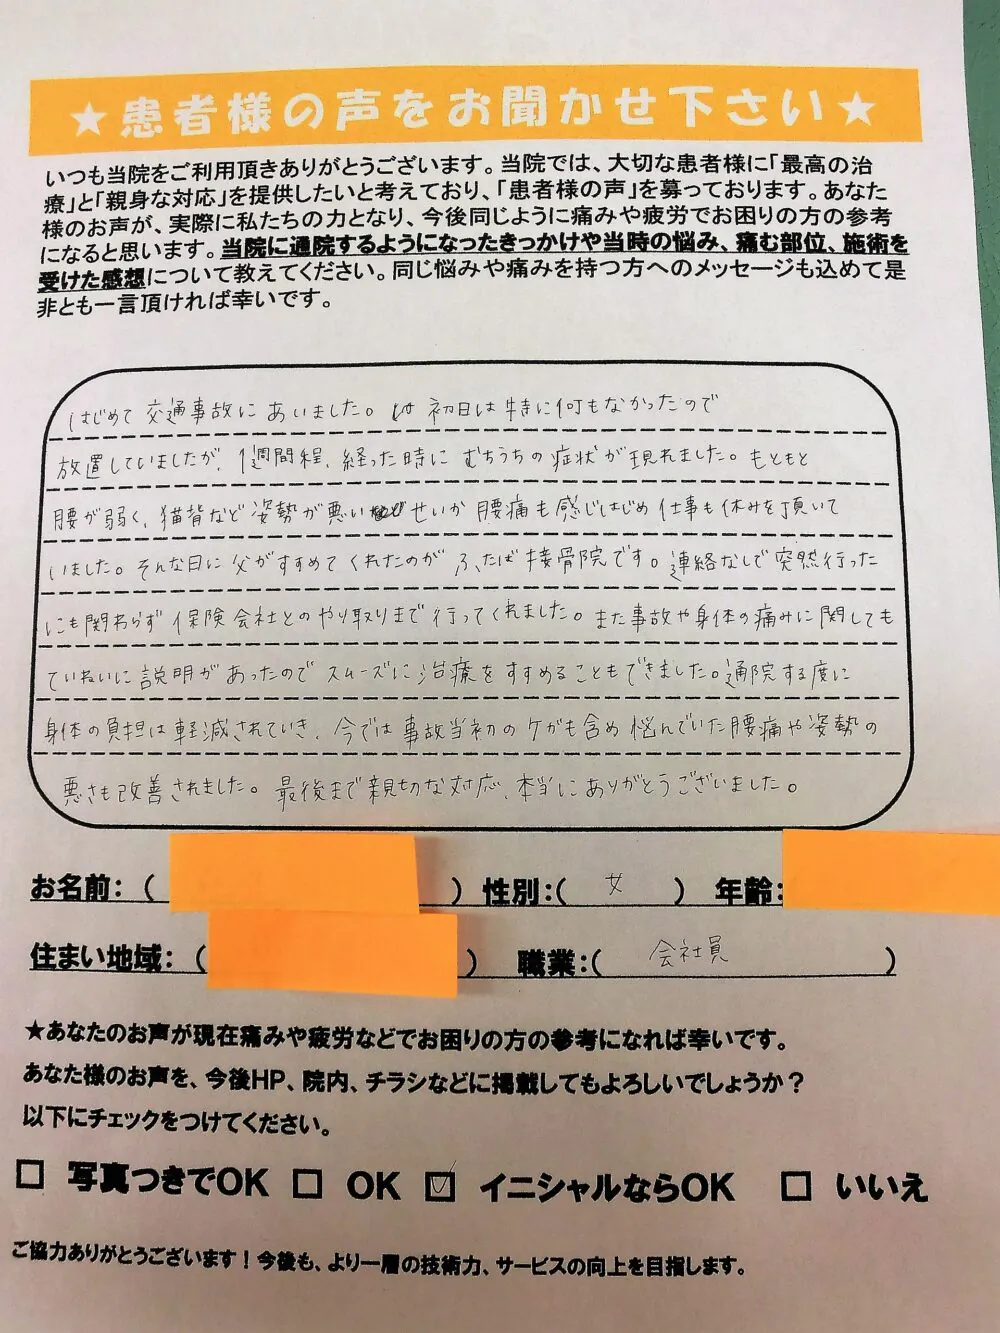 ★患者様の声をお聞かせ下さい★
いつも当院をご利用頂きありがとうございます。当院では、大切な患者様に「最高の治
療」と「親身な対応」を提供したいと考えており、「患者様の声」を募っております。あなた
様のお声が、実際に私たちの力となり、今後同じように痛みや疲労でお困りの方の参考
になると思います。当院に通院するようになったきっかけや当時の悩み、痛む部位、施術を
受けた感想について教えてください。同じ悩みや痛みを持つ方へのメッセージも込めて是
非とも一言頂ければ幸いです。
はじめて交通事故にあいました。初日は特に何もなかったので
放置していましたが、1週間程、経った時にむちうちの症状が現れました。もともと
腰が弱く、猫背など姿勢が悪いせいか腰痛も感じはじめ仕事も休みを頂いて
いました。そんな日に父がすすめてくれたのがふたば接骨院です。連絡なしで突然行った
にも関わらず保険会社とのやり取りまで行ってくれました。また事故や身体の痛みに関しても
ていねいに説明があったのでスムーズに治療をすすめることもできました。通院する度に
身体の負担は軽減されていき、今では事故当初のケガも含め悩んでいた腰痛や姿勢の
悪さも改善されました。最後まで親切な対応、本当にありがとうございました。
お名前:( ) 性別:( 女 ) 年齢:
住まい地域:( ) 職業:( 会社員 )
★あなたのお声が現在痛みや疲労などでお困りの方の参考になれば幸いです。
あなた様のお声を、今後HP、院内、チラシなどに掲載してもよろしいでしょうか?
以下にチェックをつけてください。
□ 写真つきでOK □ OK ☑ イニシャルならOK □ いいえ
ご協力ありがとうございます!今後も、より一層の技術力、サービスの向上を目指します。